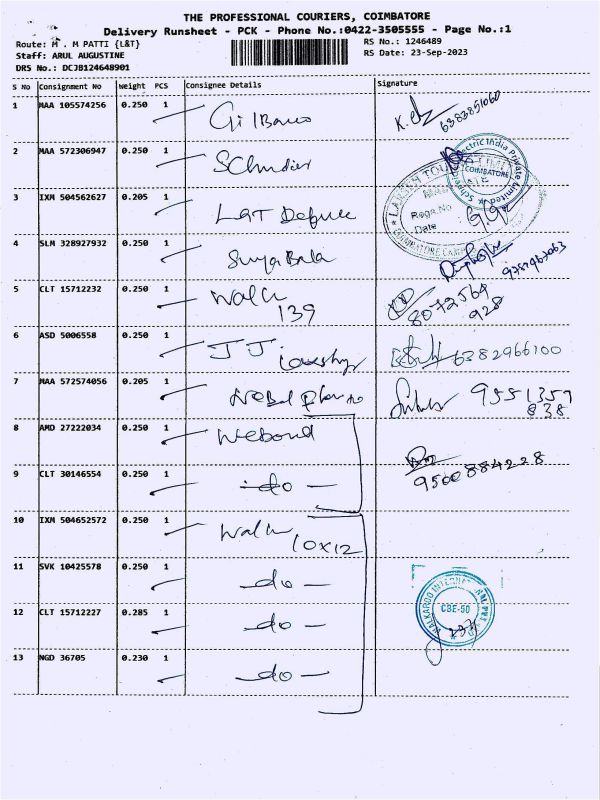 THE PROFESSIONAL COURIERS, COIMBATORE
Delivery Runsheet - PCK - Phone No.:0422-3505555 - Page No.:1
Route: M . M PATTI {L&T}
RS No.: 1246489
Staff: ARUL AUGUSTINE
RS Date: 23-Sep-2023
DRS No.: DCJB124648901
S No Consignment No Weight PCS Consignee Details Signature
1 MAA 105574256 0.250 1
6383851060
2 MAA 572306947 0.250 1
Electric India Private Limited
COIMBATORE
3 IXM 504562627 0.205 1 L&T Defence
Regn.No
Date
4 SLM 328927932 0.250 1 Surya Bala
5 CLT 15712232 0.250 1 Walk
139
8072564
928
6 ASD 5006558 0.250 1 JJ
6382966100
7 MAA 572574056 0.205 1
9551357
838
8 AMD 27222034 0.250 1 Webond
9 CLT 30146554 0.250 1 -do-
9500884228
10 IXM 504652572 0.250 1 Walk
10X12
11 SVK 10425578 0.250 1 -do-
12 CLT 15712227 0.285 1 -do-
CBE-50
13 NGD 36705 0.230 1 -do-